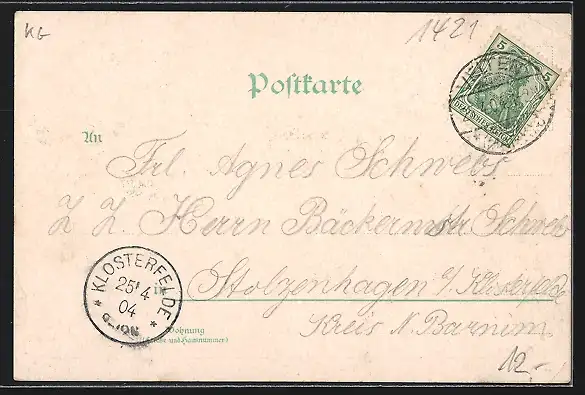 KG
1421
5 5
VELTEN
DEUTSCHES REICH
Postkarte
An
Frl. Agnes Schwebs
z. Z. Herrn Bäckermstr. Schwebs
in
Stolzenhagen b/ Klosterfelde
Kreis N. Barnim
* KLOSTERFELDE *
25 4
04
Wohnung
(Straße und Hausnummer)
12.-